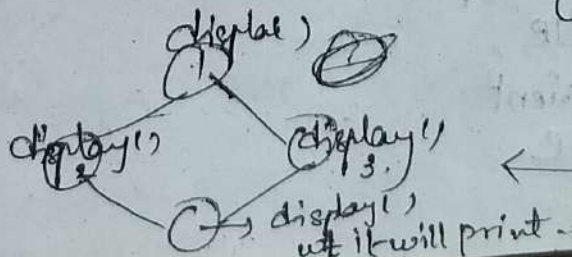 display()
1
display()
2
display()
3.
display()
it will print.